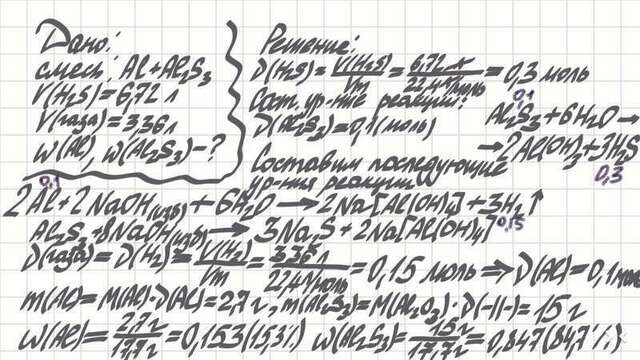 Дано:
смесь: Al+Al₂S₃
V(H₂S)=6,72 л
V(газа)=3,36 л
W(Al), W(Al₂S₃)-?
Решение:
ν(H₂S)=V(H₂S)/Vm=6,72 л/22,4 л/моль=0,3 моль
Сост. ур-ние реакции:
0,1
Al₂S₃+6H₂O→
ν(Al₂S₃)=0,1(моль)
→2Al(OH)₃+3H₂S
0,3
Составим последующие
ур-ния реакций
0,1
2Al+2NaOH(изб)+6H₂O→2Na[Al(OH)₄]+3H₂↑
0,15
Al₂S₃+8NaOH(изб)→3Na₂S+2Na[Al(OH)₄]
ν(газа)=ν(H₂)=V(H₂)/Vm=3,36 л/22,4 л/моль=0,15 моль⇒ν(Al)=0,1 моль
m(Al)=M(Al)·ν(Al)=2,7 г, m(Al₂S₃)=M(Al₂O₃)·ν(-||-)=15 г
W(Al)=2,7 г/17,7 г=0,153(15,3%) W(Al₂S₃)=15 г/17,7 г=0,847(84,7%)